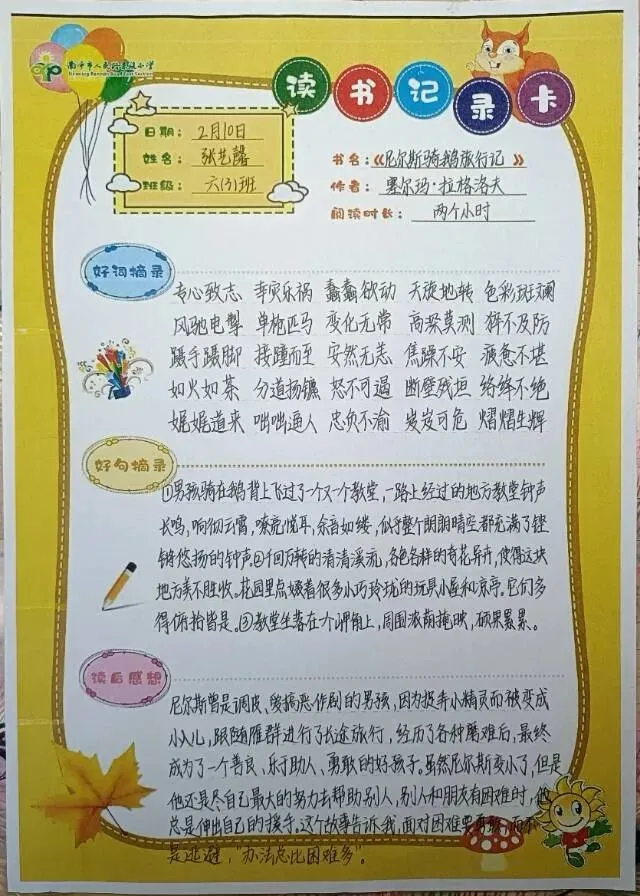 读书记录卡
日期：2月10日
姓名：张艺馨
班级：六(3)班
书名：《尼尔斯骑鹅旅行记》
作者：塞尔玛·拉格洛夫
阅读时长：两个小时
好词摘录
专心致志 幸灾乐祸 蠢蠢欲动 天旋地转 色彩斑斓
风驰电掣 单枪匹马 变化无常 高深莫测 猝不及防
蹑手蹑脚 接踵而至 安然无恙 焦躁不安 疲惫不堪
如火如荼 分道扬镳 怒不可遏 断壁残垣 络绎不绝
娓娓道来 咄咄逼人 忠贞不渝 岌岌可危 熠熠生辉
好句摘录
①男孩骑在鹅背上飞过了一个又一个教堂，一路上经过的地方教堂钟声
长鸣，响彻云霄，嘹亮悦耳，余音如缕，似乎整个朗朗晴空都充满了铿
锵悠扬的钟声。②千回万转的清清溪流，各色各样的奇花异卉，使得这块
地方美不胜收。花园里点缀着很多小巧玲珑的玩具小屋和凉亭。它们多
得俯拾皆是。③教堂坐落在一个岬角上，周围浓荫掩映，硕果累累。
读后感想
尼尔斯曾是调皮、爱搞恶作剧的男孩，因为捉弄小精灵而被变成
小人儿，跟随雁群进行了长途旅行，经历了各种磨难后，最终
成为了一个善良、乐于助人、勇敢的好孩子。虽然尼尔斯变小了，但是
他还是尽自己最大的努力去帮助别人，别人和朋友有困难时，他
总是伸出自己的援手。这个故事告诉我，面对困难要勇敢，而不
是逃避，“办法总比困难多”。